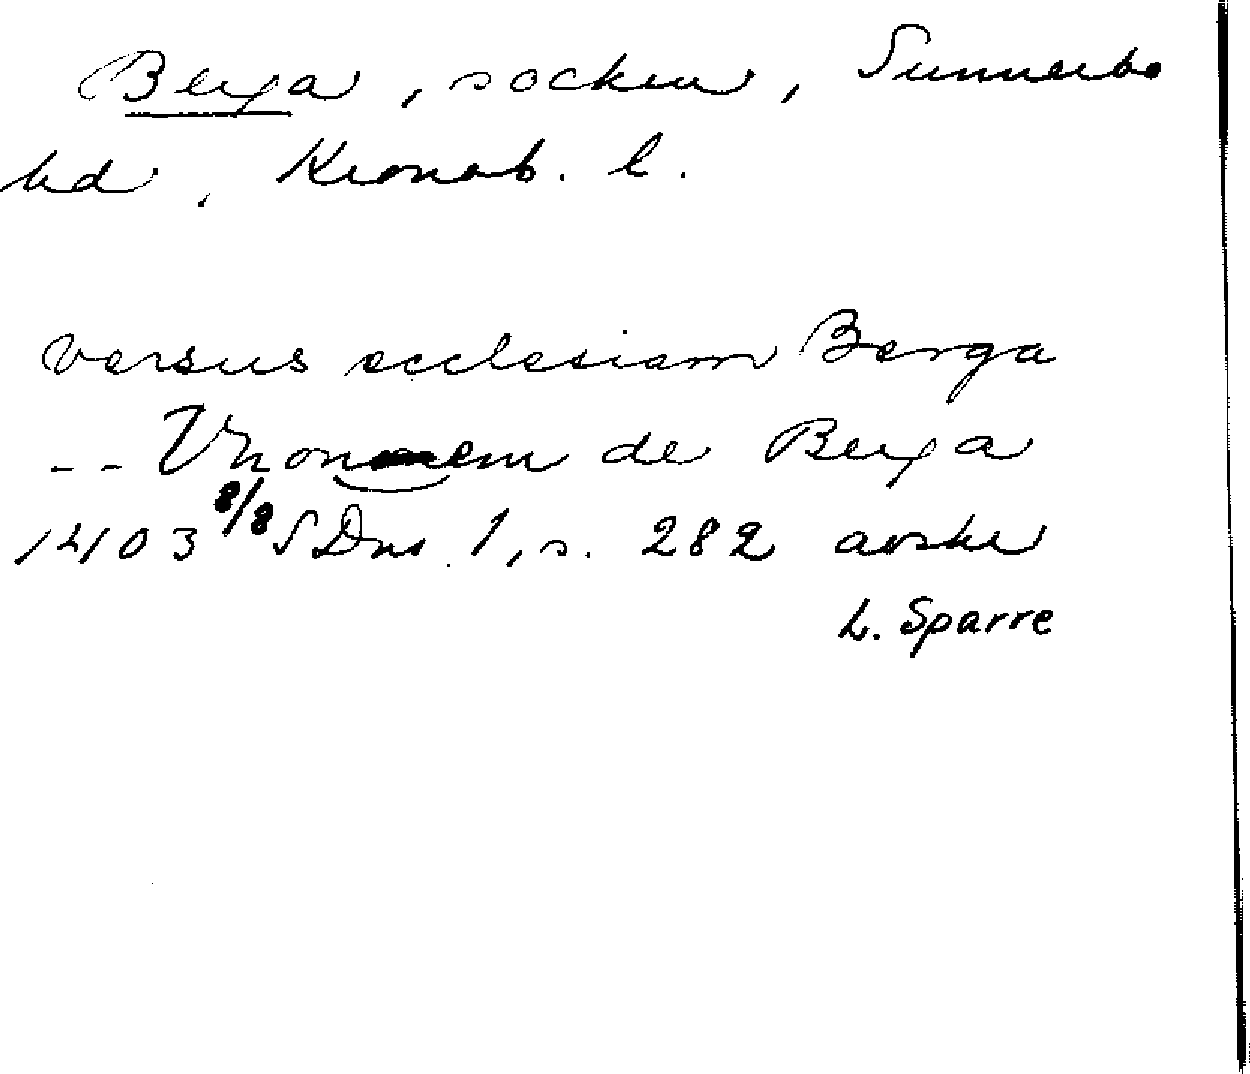 Berga, socken, Sunnerbo
hd, Kronob. l.
versus ecclesiam Berga
-- Thronem de Berga
1403 8/8 SDns 1, s. 282 avskr
L. Sparre